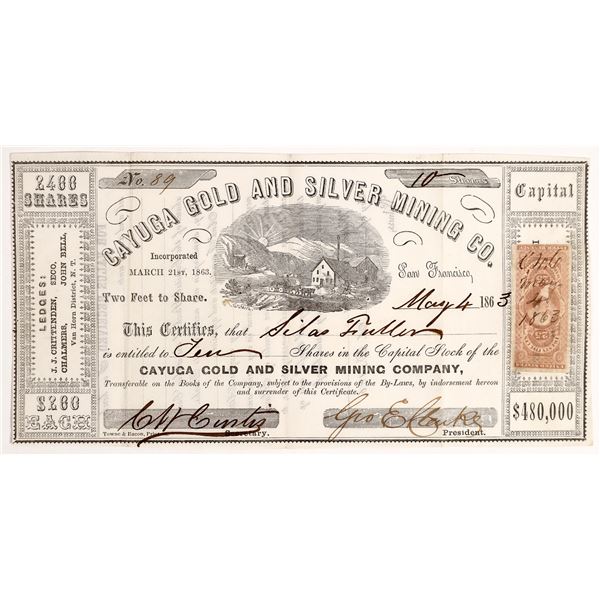 2400
SHARES
LEDGES:
J. J. CRITTENDEN, SECO,
CHALMERS, JOHN BELL,
Van Horn District, N. T.
$200
EACH
No. 89
10 Shares
CAYUGA GOLD AND SILVER MINING CO.
Incorporated
MARCH 21ST, 1863.
San Francisco,
Two Feet to Share.
May 4 1863
This Certifies, that Silas Fuller
is entitled to Ten Shares in the Capital Stock of the
CAYUGA GOLD AND SILVER MINING COMPANY,
Transferable on the Books of the Company, subject to the provisions of the By-Laws, by indorsement hereon
and surrender of this Certificate.
C W Curtis
Geo E Clarke
Towne & Bacon,
Secretary.
President.
Capital
4
1863
$480,000